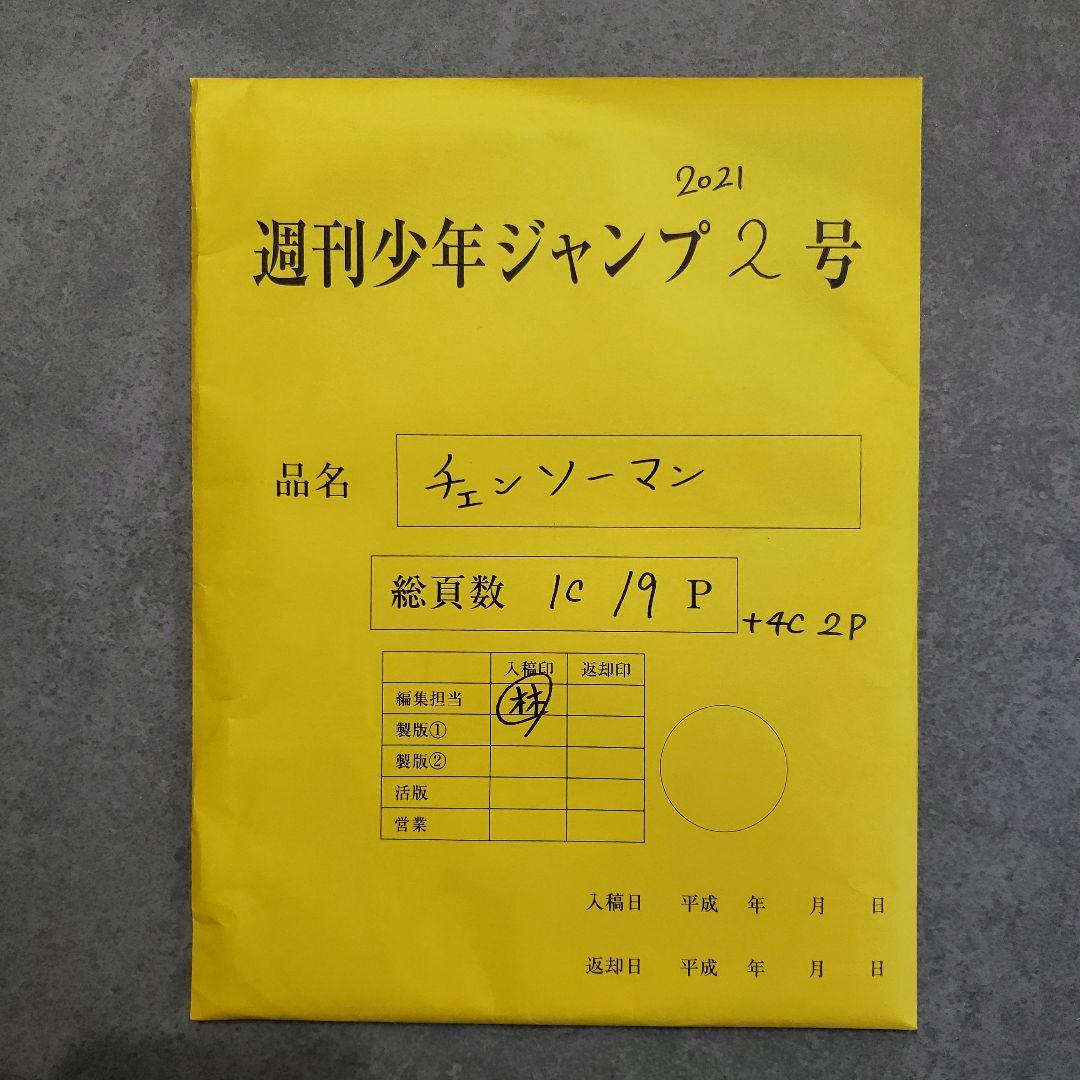 2021
週刊少年ジャンプ 2 号
品名 チェンソーマン
総頁数 1C 19 P
+4C 2P
入稿印 返却印
編集担当 林
製版①
製版②
活版
営業
入稿日 平成 年 月 日
返却日 平成 年 月 日